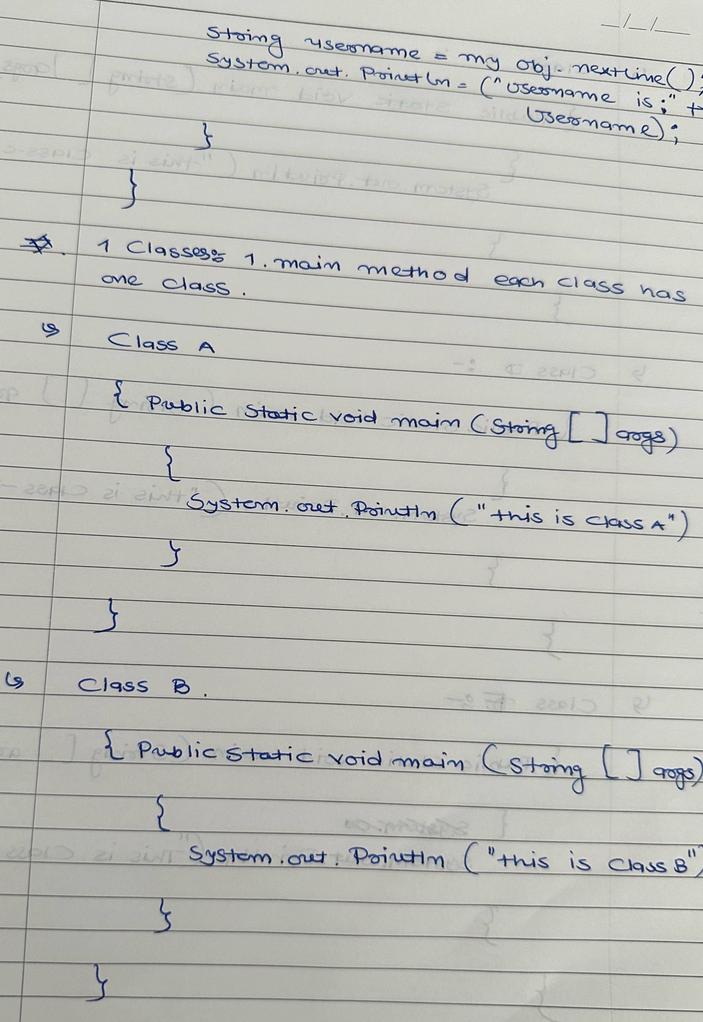 _/_/__
String username = my obj. nextLine();
System.out. Println = ("username is;" +
Username);
}
}
1 Classes: 1. main method each class has
one class.
↳ Class A
{ Public Static void main (String [ ] args)
{
System.out.Println ("this is class A")
}
}
↳ Class B.
{ Public Static void main (String [ ] args)
{
System.out. Println ("this is class B"
}
}